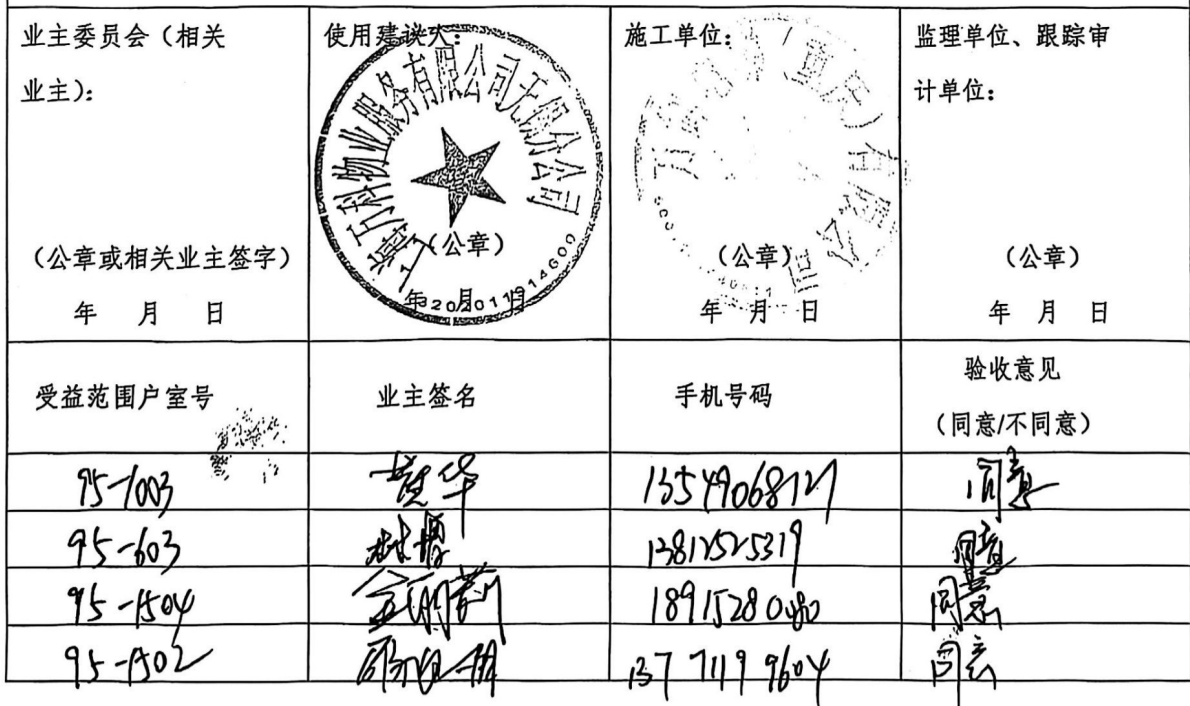 业主委员会（相关
业主）：
（公章或相关业主签字）
年 月 日
使用建议人：
上海万科物业服务有限公司无锡分公司
（公章）
年 月 日
施工单位：
（公章）
年 月 日
监理单位、跟踪审
计单位：
（公章）
年 月 日
受益范围户室号 业主签名 手机号码 验收意见
（同意/不同意）
95-1003 华 同意
95-603 13812525319 同意
95-1504 同意
95-1502 13771199604 同意